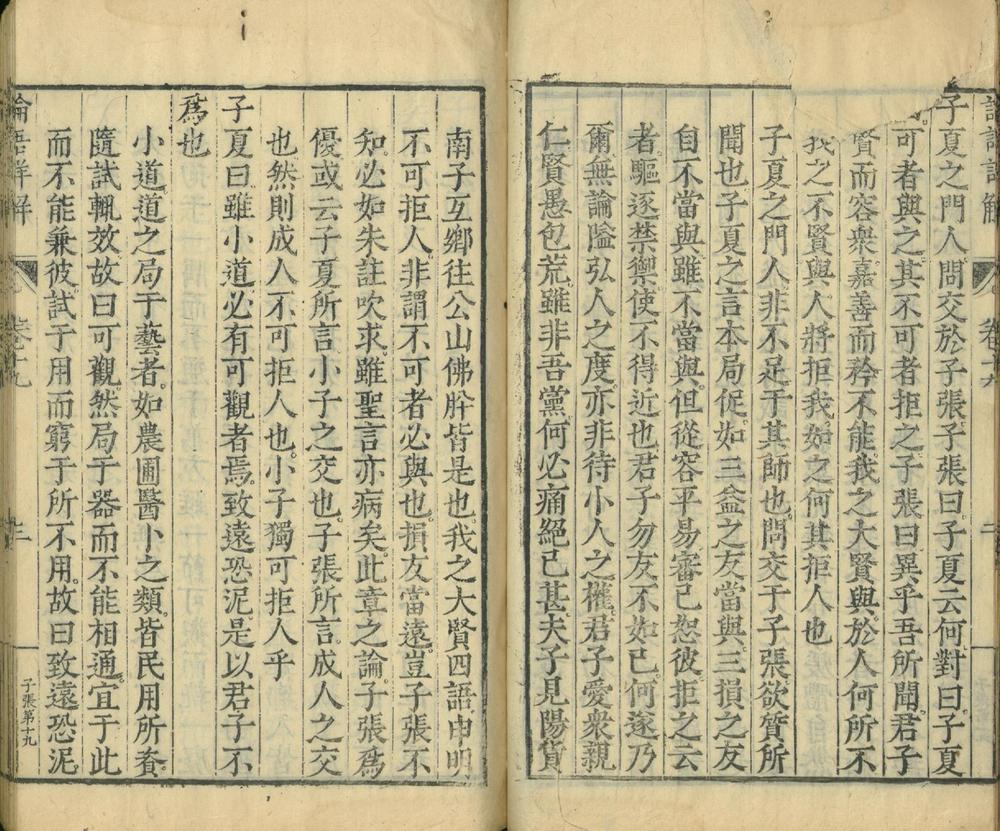 論語詳解 卷十九 二
子夏之門人問交於子張子張曰子夏云何對曰子夏
可者與之其不可者拒之子張曰異乎吾所聞君子
賢而容衆嘉善而矜不能我之大賢與於人何所不
我之不賢與人將拒我如之何其拒人也
子夏之門人非不足于其師也問交于子張欲質所
聞也子夏之言本局促如三益之友當與三損之友
自不當與雖不當與但從容平易審己恕彼拒之云
者驅逐禁禦使不得近也君子勿友不如己何遂乃
爾無論隘弘人之度亦非待小人之權君子愛衆親
仁賢愚包荒雖非吾黨何必痛絕已甚夫子見陽貨
南子互鄉往公山佛肸皆是也我之大賢四語申明
不可拒人非謂不可者必與也損友當遠豈子張不
知必如朱註吹求雖聖言亦病矣此章之論子張為
優或云子夏所言小子之交也子張所言成人之交
也然則成人不可拒人也小子獨可拒人乎
子夏曰雖小道必有可觀者焉致遠恐泥是以君子不
為也
小道道之局于藝者如農圃醫卜之類皆民用所資
隨試輒效故曰可觀然局于器而不能相通宜于此
而不能兼彼試于用而窮于所不用故曰致遠恐泥
論語詳解 卷十九 三 子張第十九